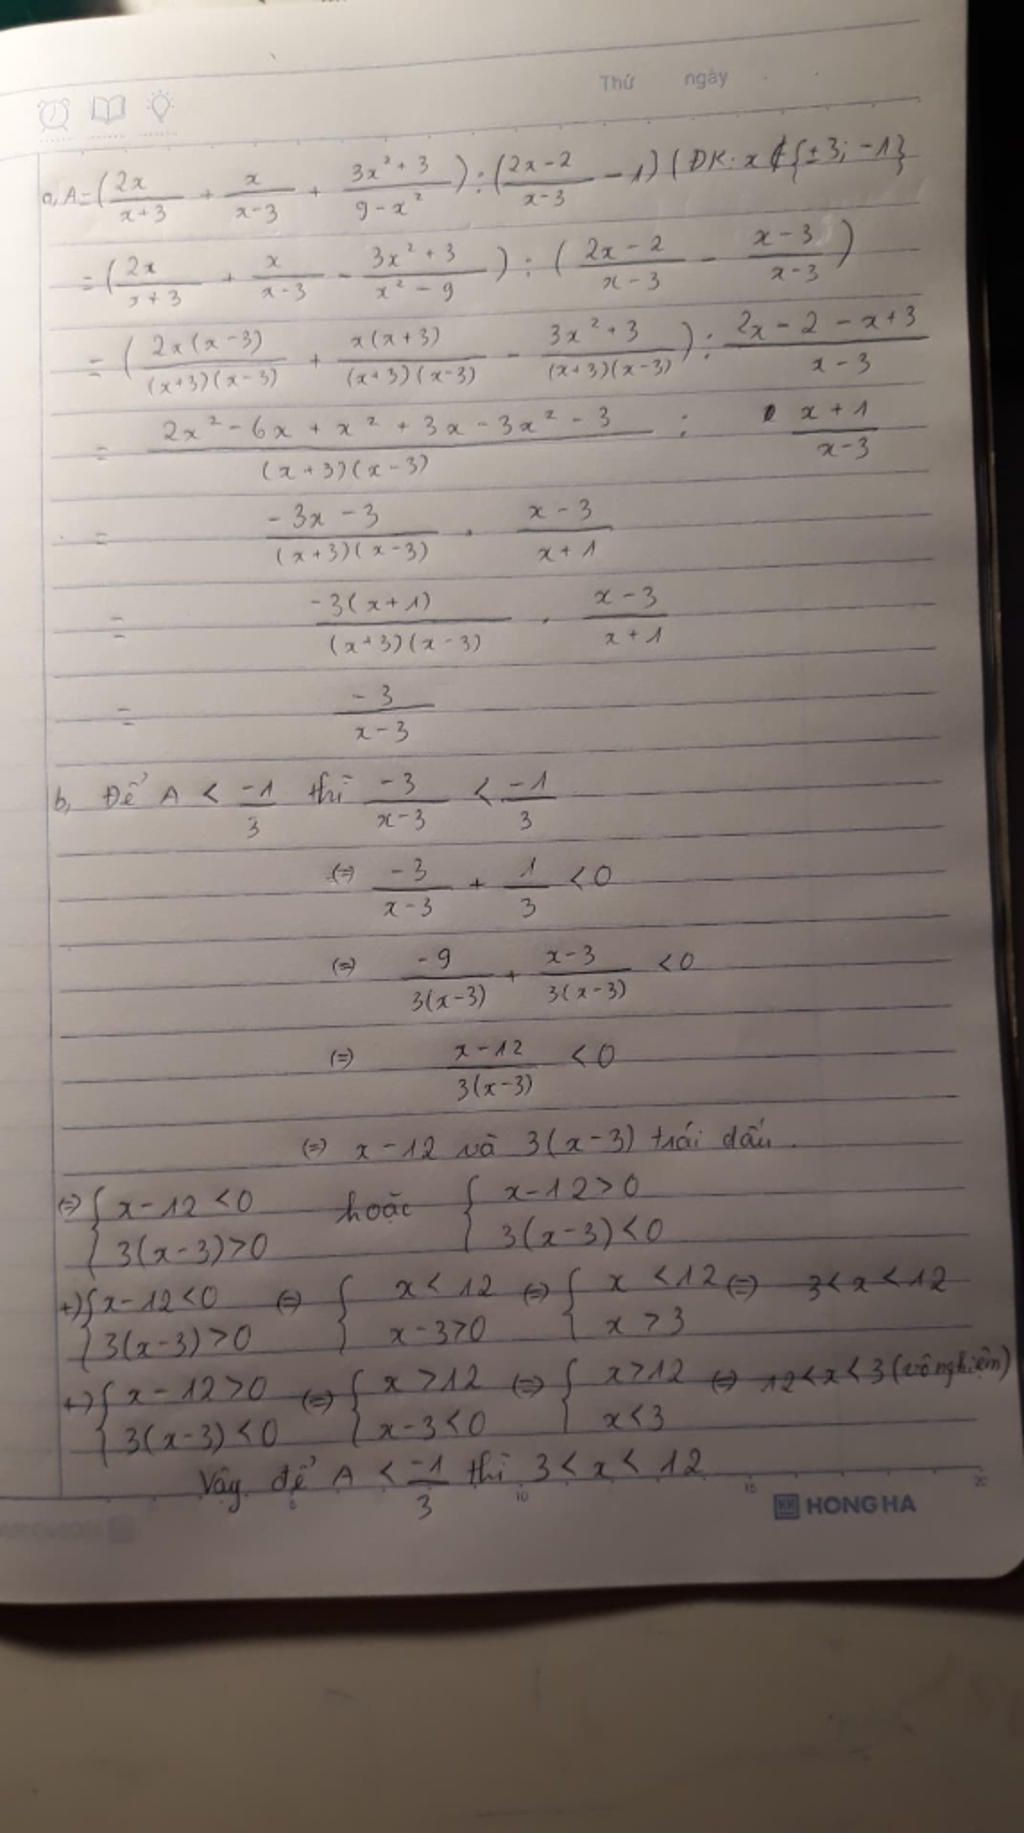 Thứ ngày
a, A = (2x/(x+3) + x/(x-3) + (3x²+3)/(9-x²)) : ((2x-2)/(x-3) - 1) (ĐK: x ∉ {±3; -1}
= (2x/(x+3) + x/(x-3) - (3x²+3)/(x²-9)) : ((2x-2)/(x-3) - (x-3)/(x-3))
= (2x(x-3)/((x+3)(x-3)) + x(x+3)/((x+3)(x-3)) - (3x²+3)/((x+3)(x-3))) : (2x-2-x+3)/(x-3)
= (2x²-6x+x²+3x-3x²-3)/((x+3)(x-3)) : (x+1)/(x-3)
= (-3x-3)/((x+3)(x-3)) . (x-3)/(x+1)
= -3(x+1)/((x+3)(x-3)) . (x-3)/(x+1)
= -3/(x-3)
b, Để A < -1/3 thì -3/(x-3) < -1/3
(=) -3/(x-3) + 1/3 < 0
(=) -9/(3(x-3)) + (x-3)/(3(x-3)) < 0
(=) (x-12)/(3(x-3)) < 0
(=) x-12 và 3(x-3) trái dấu.
(=) { x-12 < 0 hoặc { x-12 > 0
3(x-3) > 0 3(x-3) < 0
+) { x-12 < 0 (=) { x < 12 (=) { x < 12 (=) 3 < x < 12
3(x-3) > 0 x-3 > 0 x > 3
+) { x-12 > 0 (=) { x > 12 (=) { x > 12 (=) 12 < x < 3 (vô nghiệm)
3(x-3) < 0 x-3 < 0 x < 3
Vậy để A < -1/3 thì 3 < x < 12
5 10 15 20
HONG HA